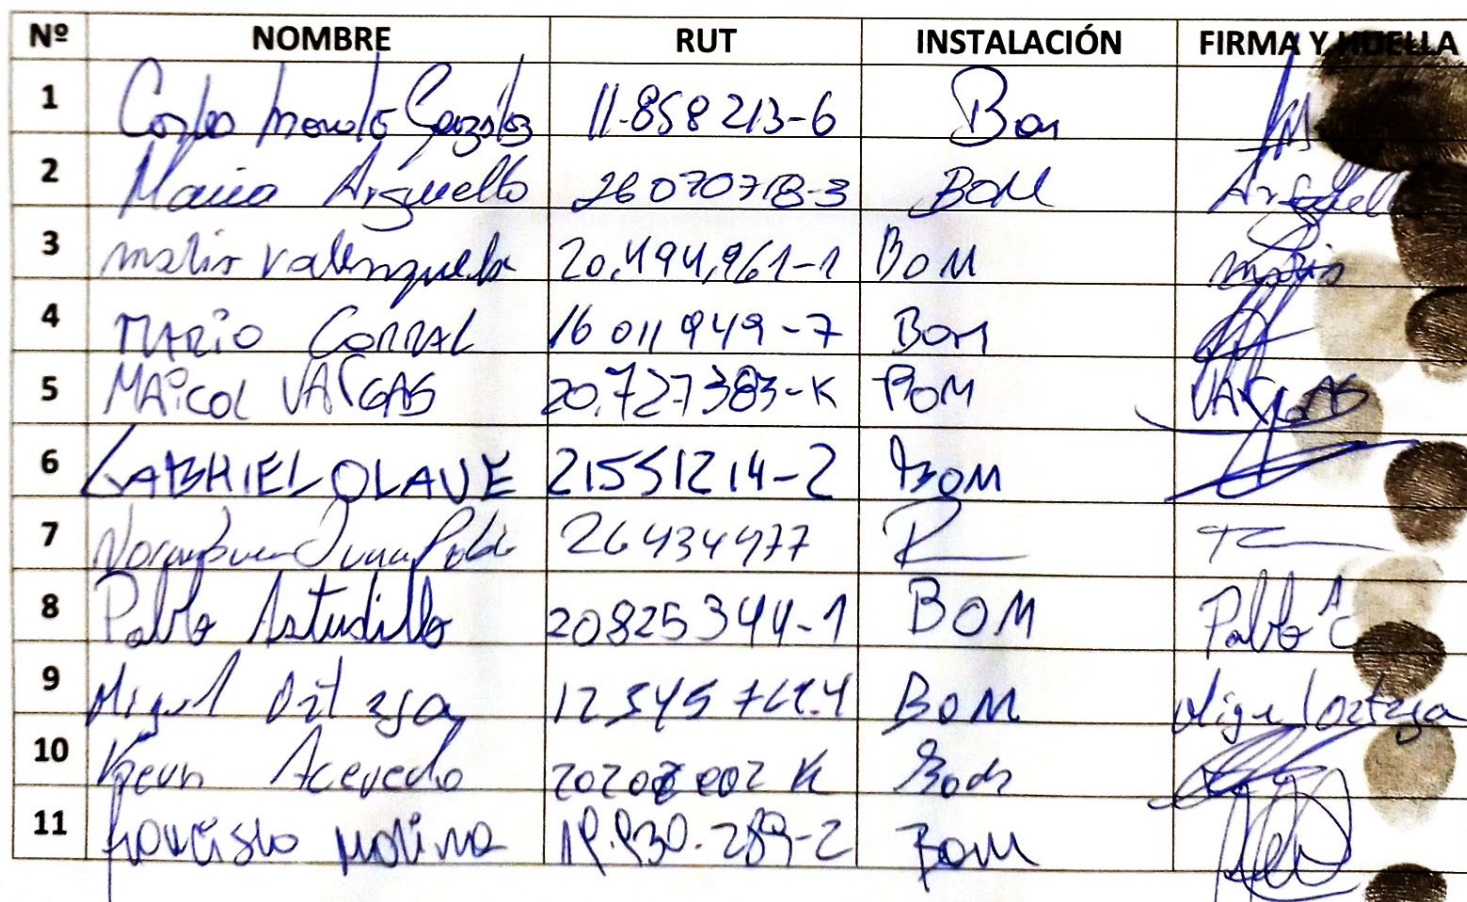 Nº NOMBRE RUT INSTALACIÓN FIRMA Y HUELLA
1 González 11.858213-6 Bom
2 Maria Arguello 26070718-3 BOM Arguello
3 matias valenzuela 20.494.961-1 BOM matias
4 MARIO CORRAL 16 011 949-7 BOM
5 MAICOL VARGAS 20.727383-K BOM VARGAS
6 GABRIEL OLAVE 21551214-2 BOM
7 Juan Pablo 26434477
8 Pablo Astudillo 20825344-1 BOM Pablo A
9 Miguel Ortega BOM Miguel Ortega
10 Acevedo
11 Francisco Molina BOM